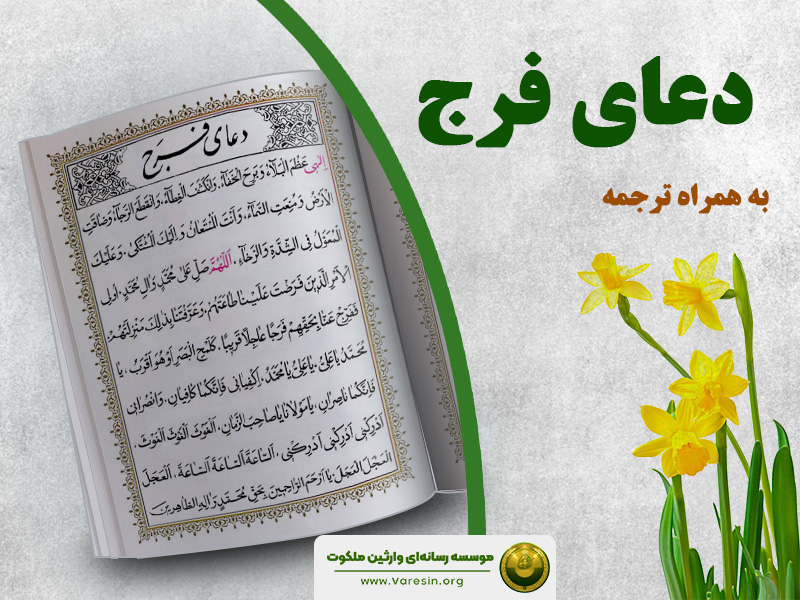 دعای فرج
به همراه ترجمه
دعای فرج
اِلٰهی عَظُمَ الْبَلَاءُ، وَبَرِحَ الْخَفَاءُ، وَانْکَشَفَ الْغِطَاءُ، وَانْقَطَعَ الرَّجَاءُ وَضَاقَتِ
الْاَرْضُ وَمُنِعَتِ السَّمَاءُ، وَاَنْتَ الْمُسْتَعَانُ وَاِلَیْکَ الْمُشْتَکٰی، وَعَلَیْکَ
الْمُعَوَّلُ فِی الشِّدَّةِ وَالرَّخَاءِ، اَللّٰهُمَّ صَلِّ عَلٰی مُحَمَّدٍ وَاٰلِ مُحَمَّدٍ، اُولِی
الْاَمْرِ الَّذِینَ فَرَضْتَ عَلَیْنَا طَاعَتَهُمْ، وَعَرَّفْتَنَا بِذٰلِکَ مَنْزِلَتَهُمْ
فَفَرِّجْ عَنَّا بِحَقِّهِمْ فَرَجًا عَاجِلًا قَرِیبًا، کَلَمْحِ الْبَصَرِ اَوْ هُوَ اَقْرَبُ، یَا
مُحَمَّدُ یَا عَلِیُّ، یَا عَلِیُّ یَا مُحَمَّدُ، اِکْفِیَانِی فَاِنَّکُمَا کَافِیَانِ، وَانْصُرَانِی
فَاِنَّکُمَا نَاصِرَانِ، یَا مَوْلَانَا یَا صَاحِبَ الزَّمَانِ، اَلْغَوْثَ اَلْغَوْثَ اَلْغَوْثَ،
اَدْرِکْنِی اَدْرِکْنِی اَدْرِکْنِی، اَلسَّاعَةَ اَلسَّاعَةَ اَلسَّاعَةَ، اَلْعَجَلَ
اَلْعَجَلَ الْعَجَلَ، یَا اَرْحَمَ الرَّاحِمِینَ، بِحَقِّ مُحَمَّدٍ وَاٰلِهِ الطَّاهِرِینَ
موسسه رسانه‌ای وارثین ملکوت
www.Varesin.org